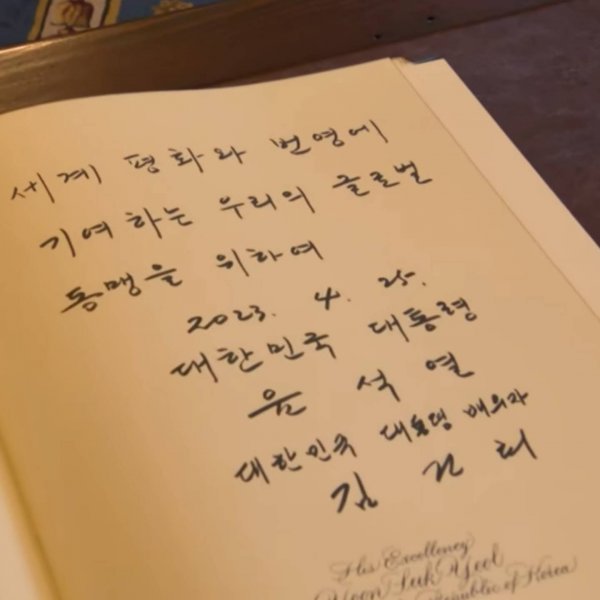 세계 평화와 번영에
기여하는 우리의 글로벌
동맹을 위하여
2023. 4. 25.
대한민국 대통령
윤 석 열
대한민국 대통령 배우자
김 건 희
His Excellency
Yoon Suk Yeol
Republic of Korea